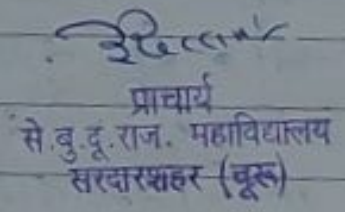 प्राचार्य
से.बु.दू.राज. महाविद्यालय
सरदारशहर (चूरू)